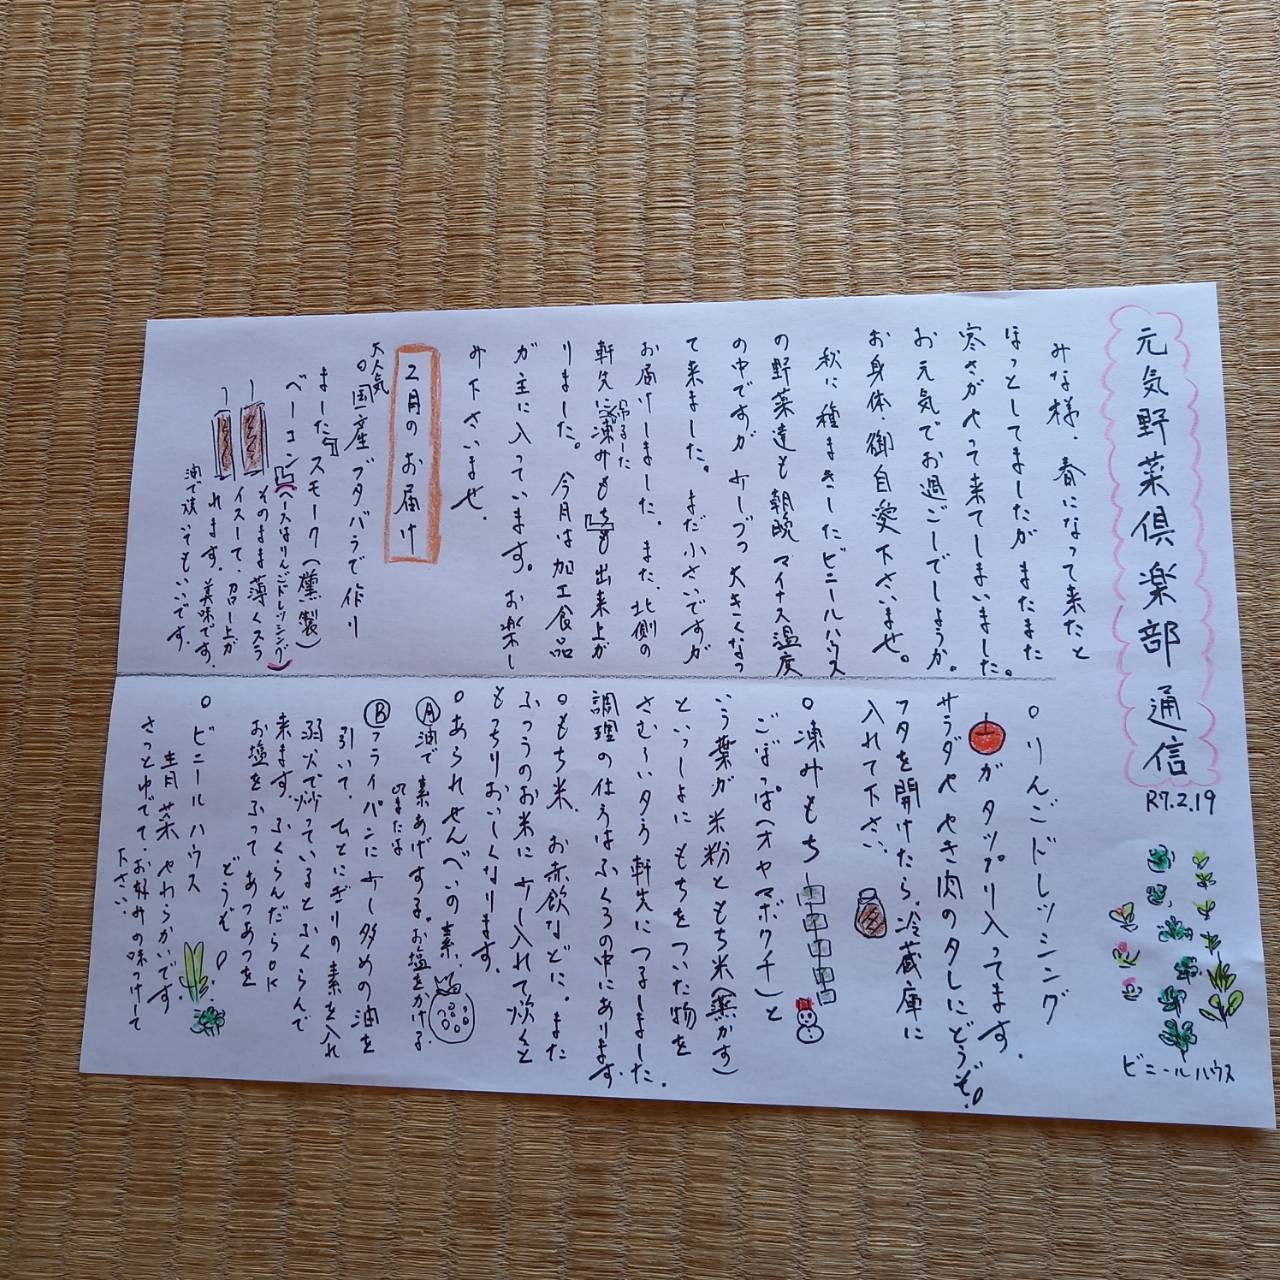 元気野菜倶楽部通信
R7.2.19
ビニールハウス
みな様、春になって来たと
ほっとしてましたが、またまた
寒さがやって来てしまいました。
お元気でお過ごしでしょうか。
お身体、御自愛下さいませ。
秋に種まきしたビニールハウス
の野菜達も朝晩マイナス温度
の中ですが少しづつ大きくなっ
て来ました。まだ小さいですが
お届けしました。また、北側の
軒先に吊るした凍みもちも出来上が
りました。今月は加工食品
が主に入っています。お楽し
み下さいませ。
2月のお届け
大人気
○国産ブタバラで作り
ました『スモーク(燻製)
ベーコン』(ベースはりんごドレッシング)
そのまま薄くスラ
イスして、召し上が
れます。美味です。
油で炊いてもいいです。
○りんごドレッシング
がタップリ入ってます。
サラダややき肉のタレにどうぞ!
フタを開けたら、冷蔵庫に
入れて下さい。
○凍みもち
ごぼっぱ(オヤマボクチ)と
いう葉が米粉ともち米(蒸かす)
といっしょにもちをついた物を
さむ〜い夕方軒先につるしました。
調理の仕方はふくろの中にあります。
○もち米、お赤飯などに。また
ふつうのお米に少し入れて炊くと
もっちりおいしくなります。
○あられせんべいの素、
Ⓐ油で素あげする。お塩をかける。
または
Ⓑフライパンに少し多めの油を
引いて、ひとにぎりの素を入れ
弱火で炒っているとふくらんで
来ます。ふくらんだらOK
お塩をふってあつあつを
どうぞ!
○ビニールハウス
青菜 やわらかいです。
さっとゆでて、お好みの味つけして
下さい。